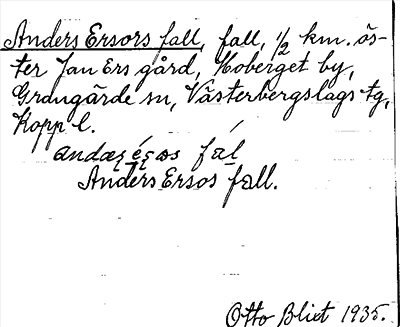 Anders Ersors fall, fall, 1/2 km. ös-
ter Jan Ers gård, Hoberget by,
Grangärde sn, Västerbergslags tg,
Kopp l.
fál
Anders Ersos fall.
Otto Blixt 1935.